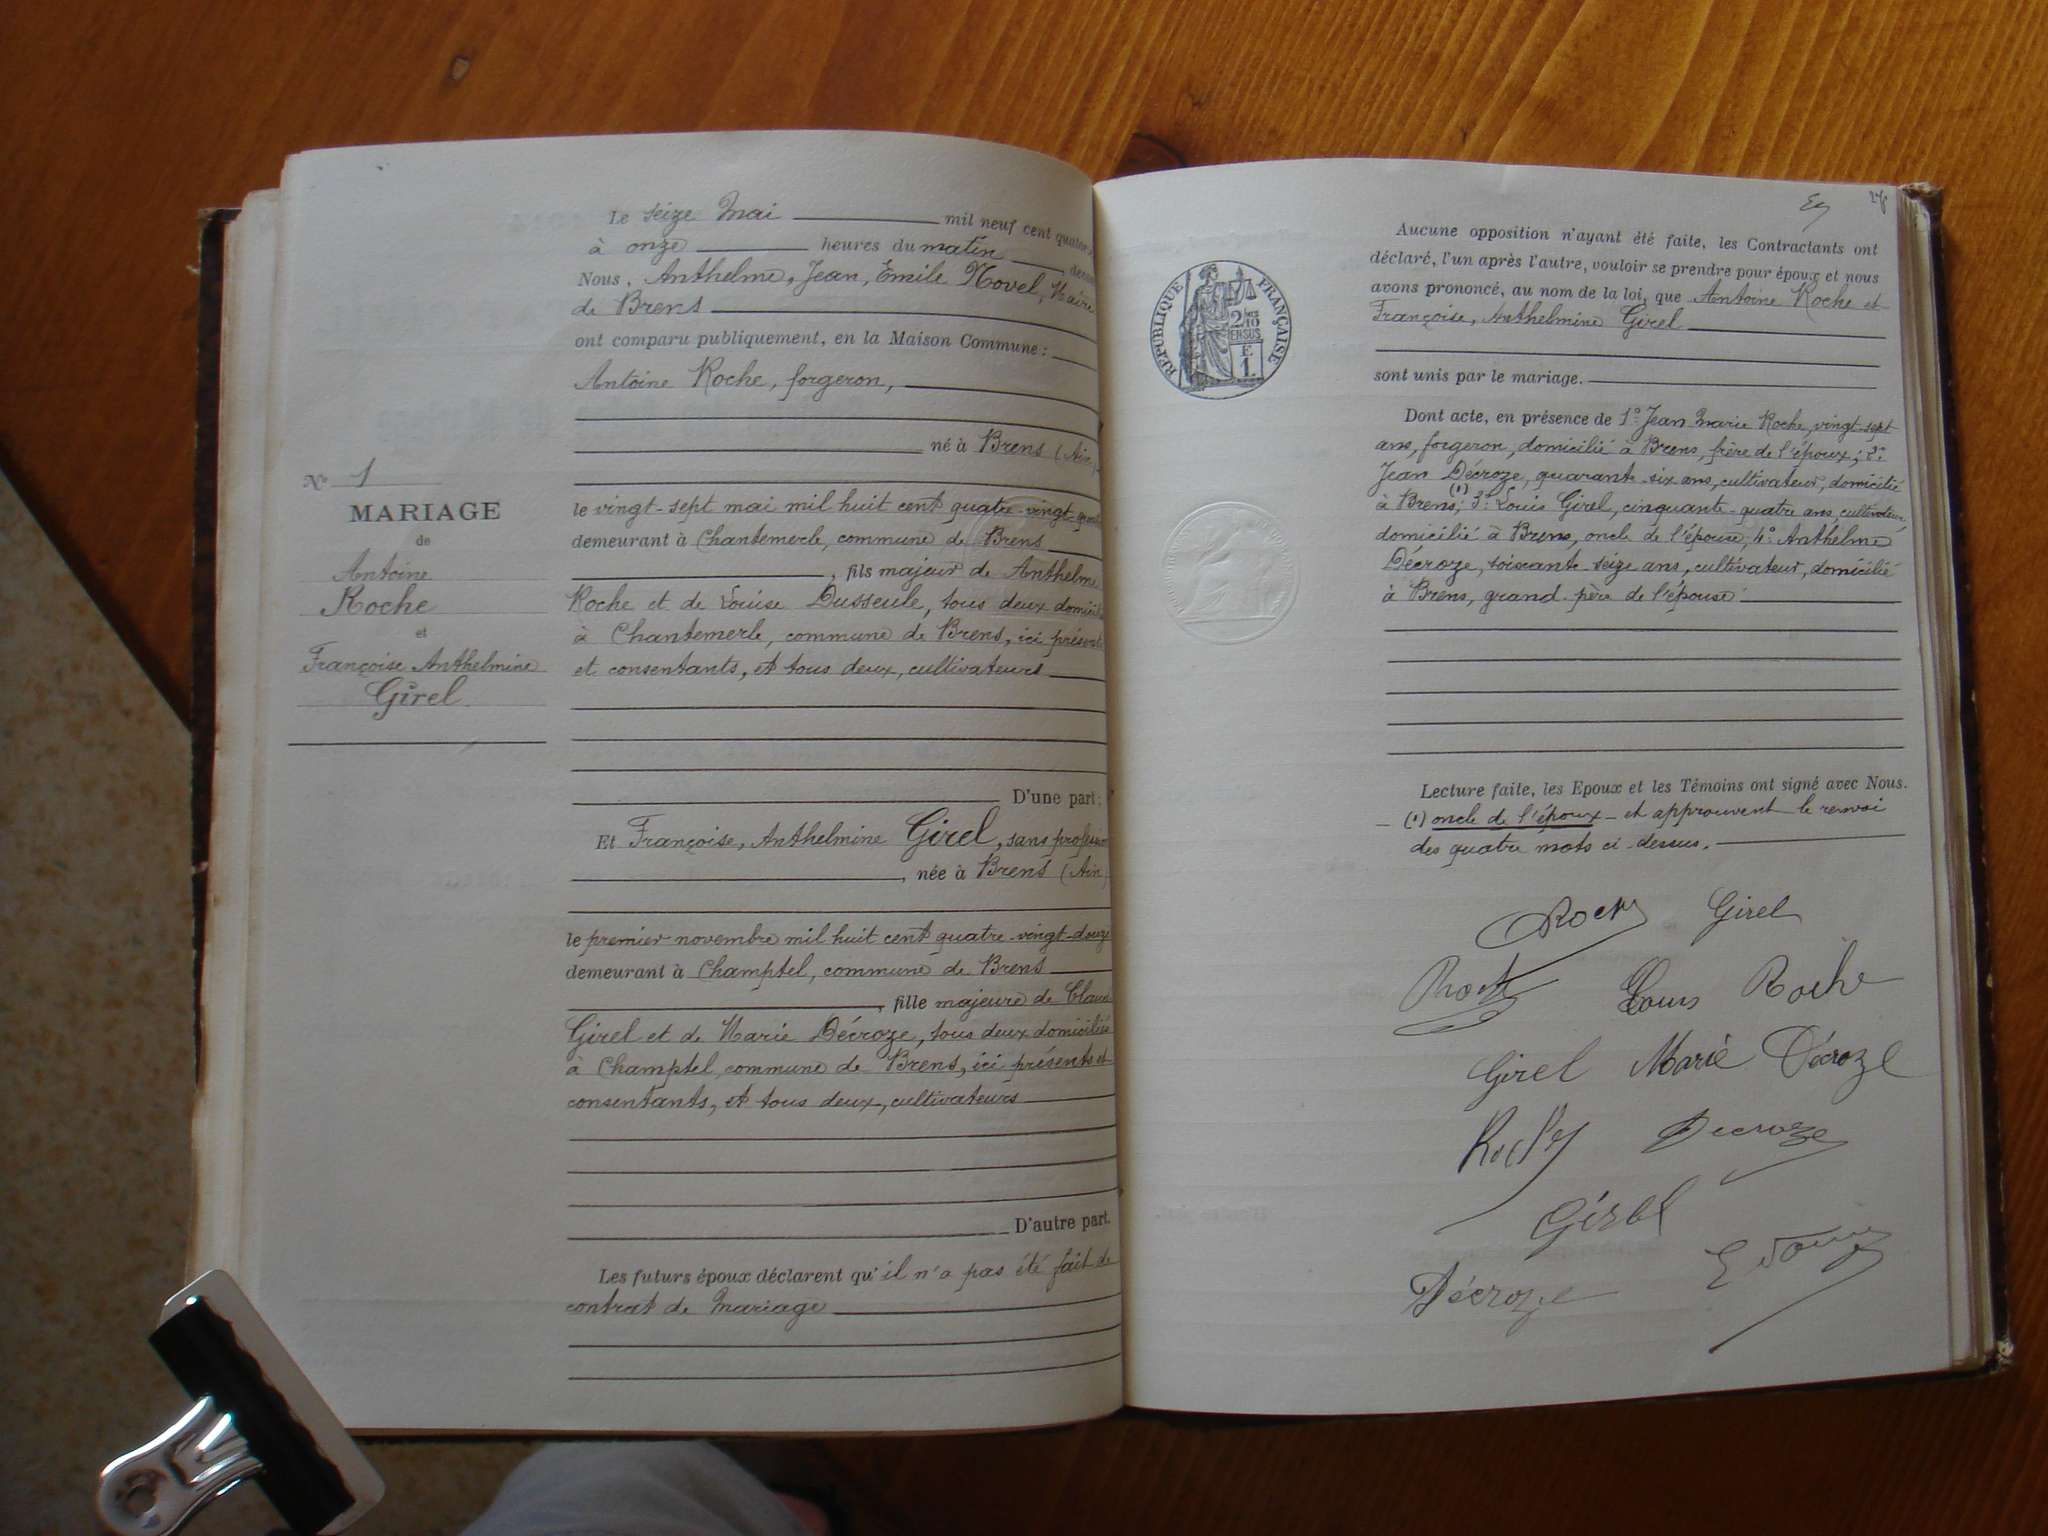 Le seize Mai mil neuf cent
à onze heures du matin
Nous, Anthelme, Jean, Emile Novel, Maire
de Brens
ont comparu publiquement, en la Maison Commune :
Antoine Roche, forgeron,
né à Brens (Ain)
le vingt-sept mai mil huit cent quatre-vingt-
demeurant à Chantemerle, commune de Brens
, fils majeur de Anthelme
Roche et de Louise Dusseule, tous deux
à Chantemerle, commune de Brens, ici
et consentants, et tous deux, cultivateurs
D'une part;
Et Françoise, Anthelmine Girel, sans profession
, née à Brens (Ain)
le premier novembre mil huit cent quatre-vingt-douze
demeurant à Champtel, commune de Brens
, fille majeure de
Girel et de Marie Décroze, tous deux domiciliés
à Champtel, commune de Brens, ici présents et
consentants, et tous deux, cultivateurs
D'autre part.
Les futurs époux déclarent qu'il n'a pas été fait de
contrat de Mariage
N° 1
MARIAGE
de
Antoine
Roche
et
Françoise Anthelmine
Girel
RÉPUBLIQUE FRANÇAISE
Aucune opposition n'ayant été faite, les Contractants ont
déclaré, l'un après l'autre, vouloir se prendre pour époux et nous
avons prononcé, au nom de la loi, que Antoine Roche et
Françoise, Anthelmine Girel
sont unis par le mariage.
Dont acte, en présence de 1° Jean Marie Roche, vingt-sept
ans, forgeron, domicilié à Brens, frère de l'époux; 2°
Jean Décroze, quarante-six ans, cultivateur, domicilié
à Brens, (1) 3° Louis Girel, cinquante-quatre ans, cultivateur,
domicilié à Brens, oncle de l'épouse, 4° Anthelme
Décroze, soixante-seize ans, cultivateur, domicilié
à Brens, grand-père de l'épouse
Lecture faite, les Epoux et les Témoins ont signé avec Nous.
(1) oncle de l'époux - et approuvent le renvoi
des quatre mots ci-dessus.
Girel
Louis Roche
Girel Marie Décroze
Decroze
Girel
Décroze